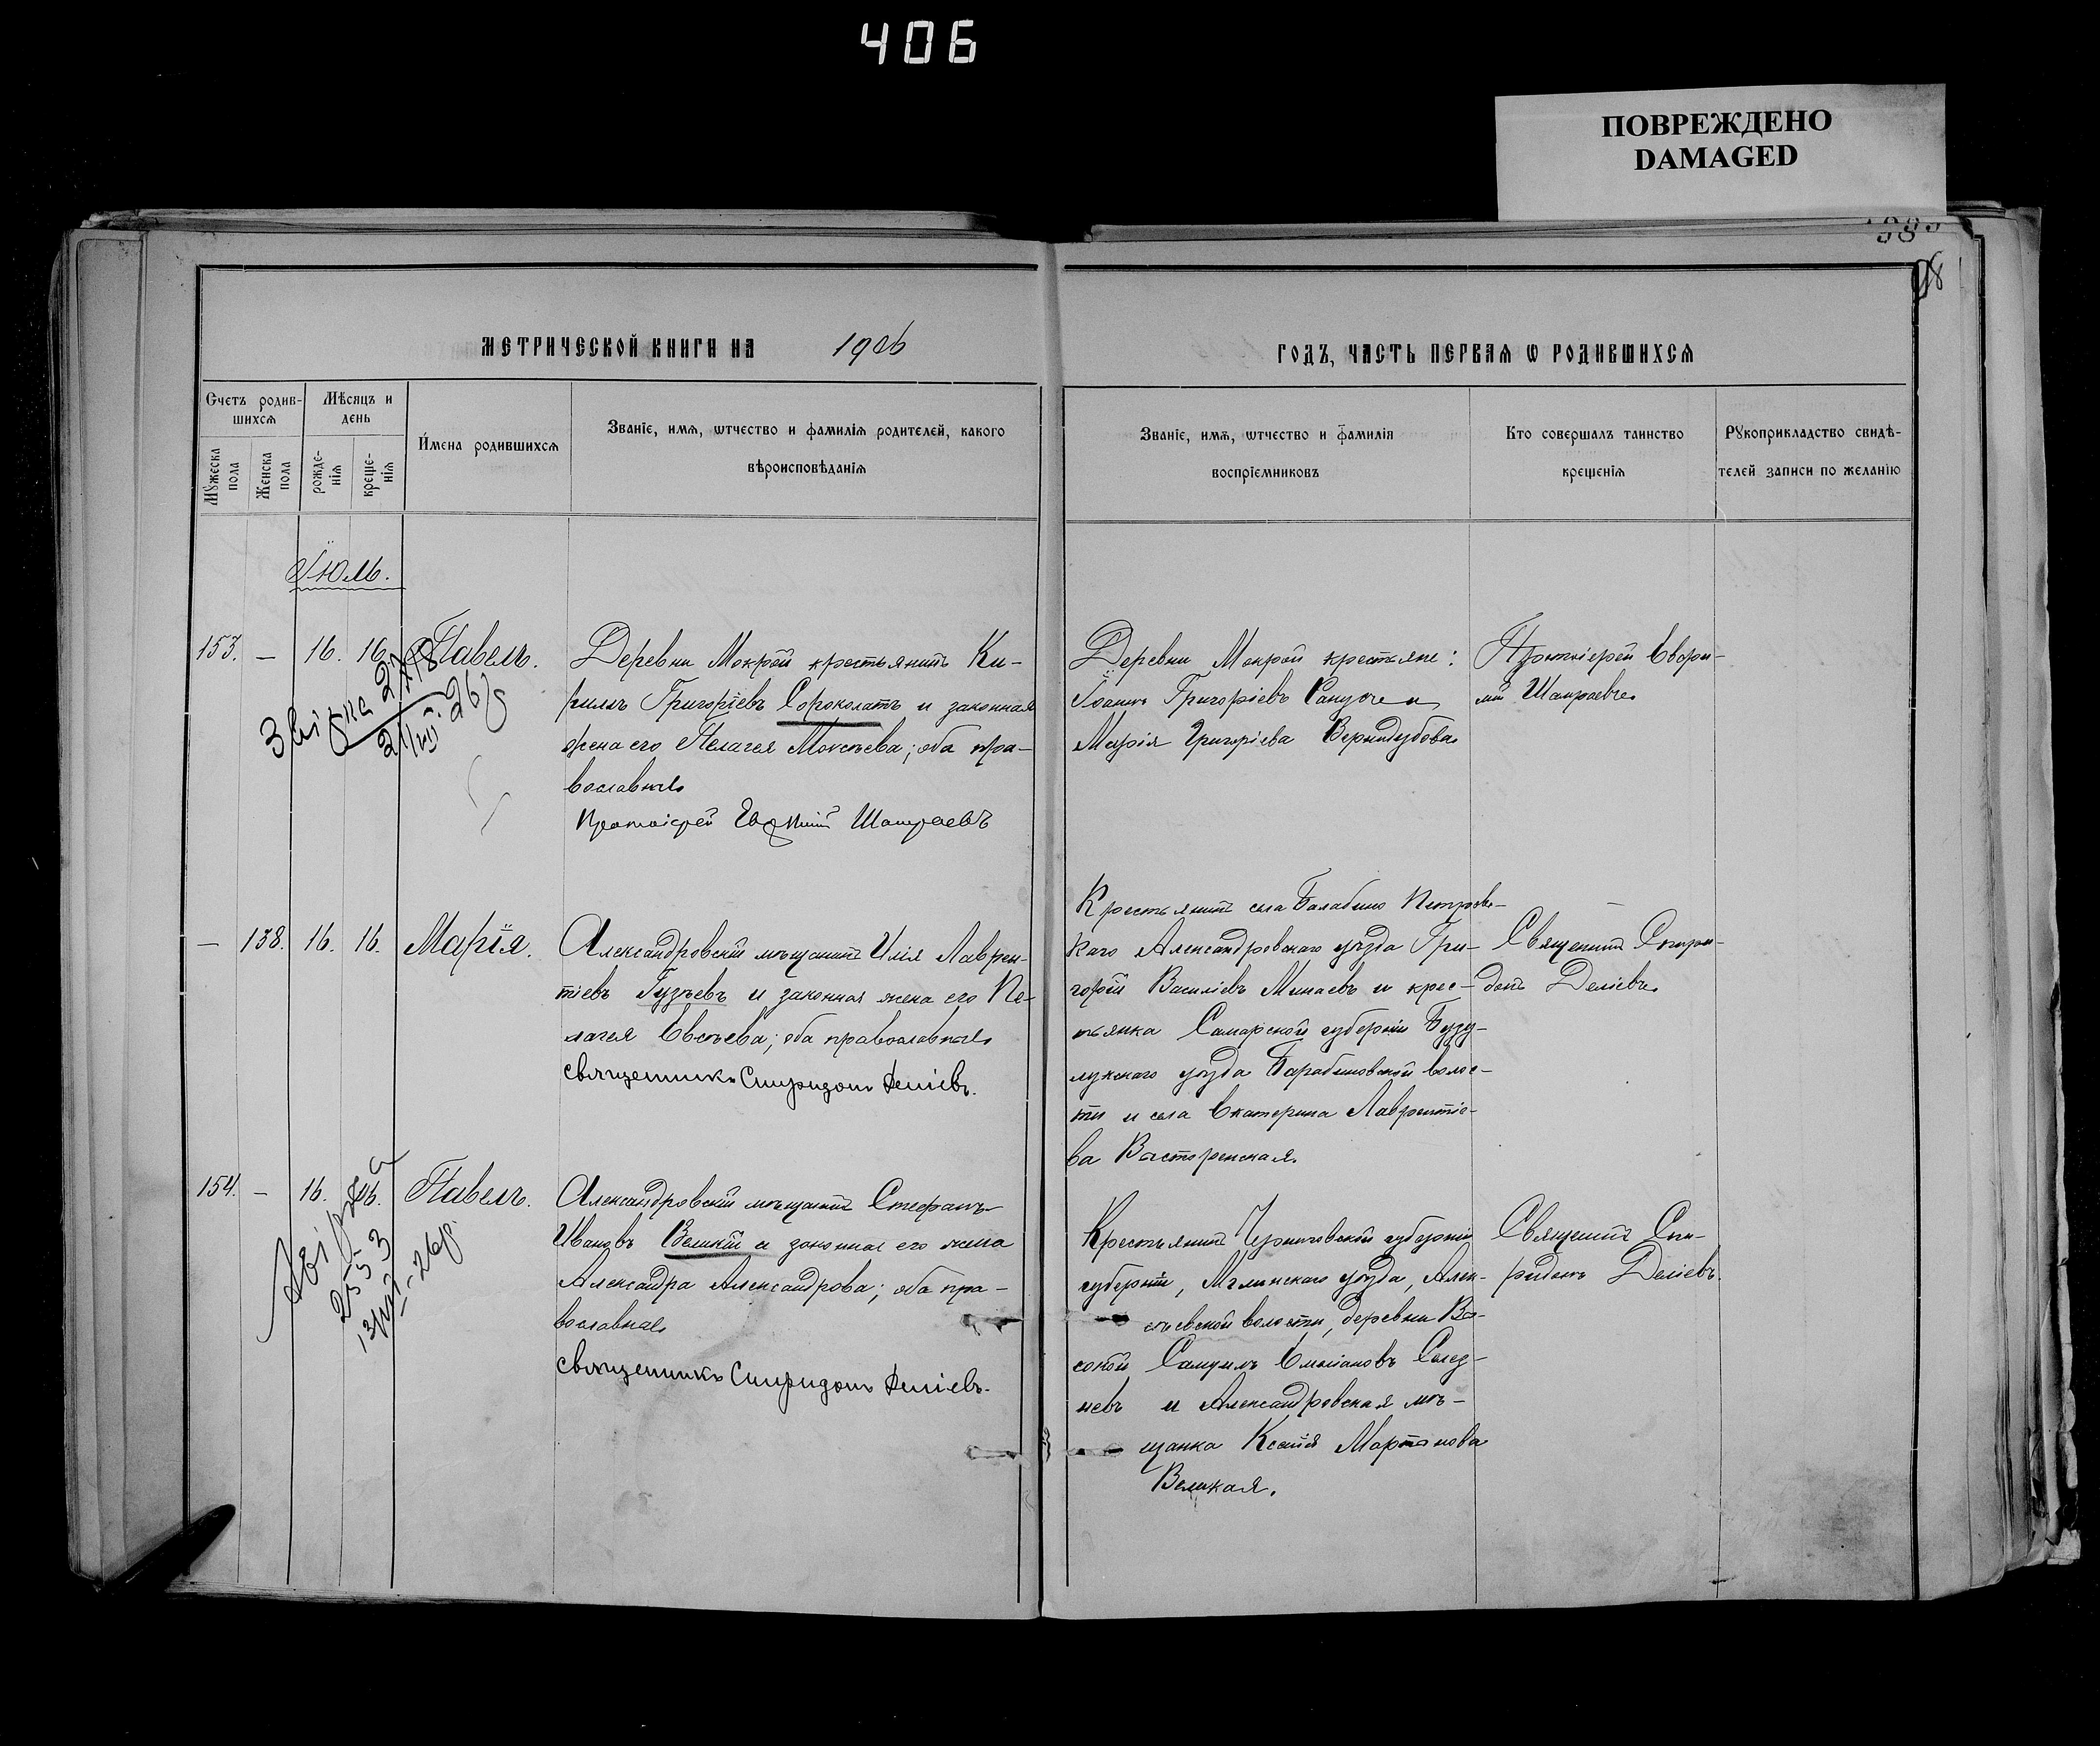 406
ПОВРЕЖДЕНО
DAMAGED
98
МЕТРИЧЕСКОЙ КНИГИ НА 1906
ГОДЪ, ЧАСТЬ ПЕРВАѦ Ѡ РОДИВШИХСѦ
Счетъ родив-
шихсѧ
Мꙋжеска
пола
Женска
пола
Мѣсяцъ и
день
рожде-
нїѧ
креще-
нїѧ
Имена родившихсѧ
Званїе, имѧ, ѡтчество и фамилїѧ родителей, какого
вѣроисповѣданїѧ
Званїе, имѧ, ѡтчество и фамилїѧ
воспрїемниковъ
Кто совершалъ таинство
крещенїѧ
Рꙋкоприкладство свидѣ-
телей записи по желанїю
Іюль.
153. — 16. 16. Павелъ.
Деревни Мокрой крестьянинъ Ки-
риллъ Григоріевъ Сороколатъ и законная
жена его Пелагея Моисѣева; оба пра-
вославные
Протоіерей Евѳимій Шамраевъ
Деревни Мокрой крестьяне:
Іоаннъ Григоріевъ и
Марія Григоріева Вернидубова
Протоіерей Евѳи-
мій Шамраевъ.
— 138. 16. 16. Марія.
Александровскій мѣщанинъ Илія Лаврен-
тіевъ Гузѣевъ и законная жена его Пе-
лагея Евсѣева; оба православные
Священникъ Спиридонъ Деліевъ.
Крестьянинъ села Балабино Петровс-
каго Александровскаго уѣзда Гри-
горій Василіевъ Минаевъ и крес-
тьянка Самарской губерніи Бузу-
лукскаго уѣзда Барабановской волос-
ти и села Екатерина Лаврентіе-
ва
Священникъ Спири-
донъ Деліевъ.
154. — 16. 16. Павелъ.
Александровскій мѣщанинъ Стефанъ
Ивановъ Великій и законная его жена
Александра Александрова; оба пра-
вославные
Священникъ Спиридонъ Деліевъ.
Крестьянинъ Черниговской губерніи
губерніи, Мглинскаго уѣзда, Алек-
сѣевской волости, деревни Вы-
сокой Самуилъ Емельяновъ След-
невъ и Александровская мѣ-
щанка Ксенія Мартынова
Великая.
Священникъ Спи-
ридонъ Деліевъ.